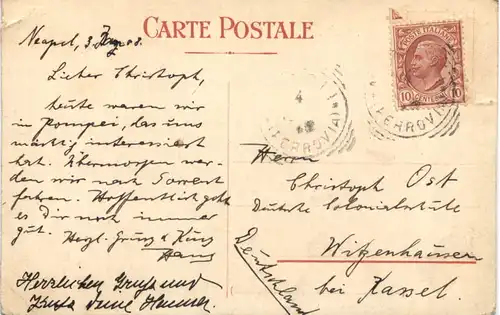 CARTE POSTALE
Neapel, 3. Aug. 08.
Lieber Christoph,
heute waren wir
in Pompei, das uns
mächtig interessiert
hat. Übermorgen wer-
den wir nach Sorrent
fahren. Hoffentlich geht
es Dir noch immer
gut. Herzl. Gruss & Kuss
Hans
Herzlichen Gruß und
Kuss Deine
POSTE ITALIANE
10 CENTESIMI 10
4
FERROVIA
FERROVIA
Herrn
Christoph Ost
Deutsche Colonialschule
Witzenhausen
bei Kassel.
Deutschland